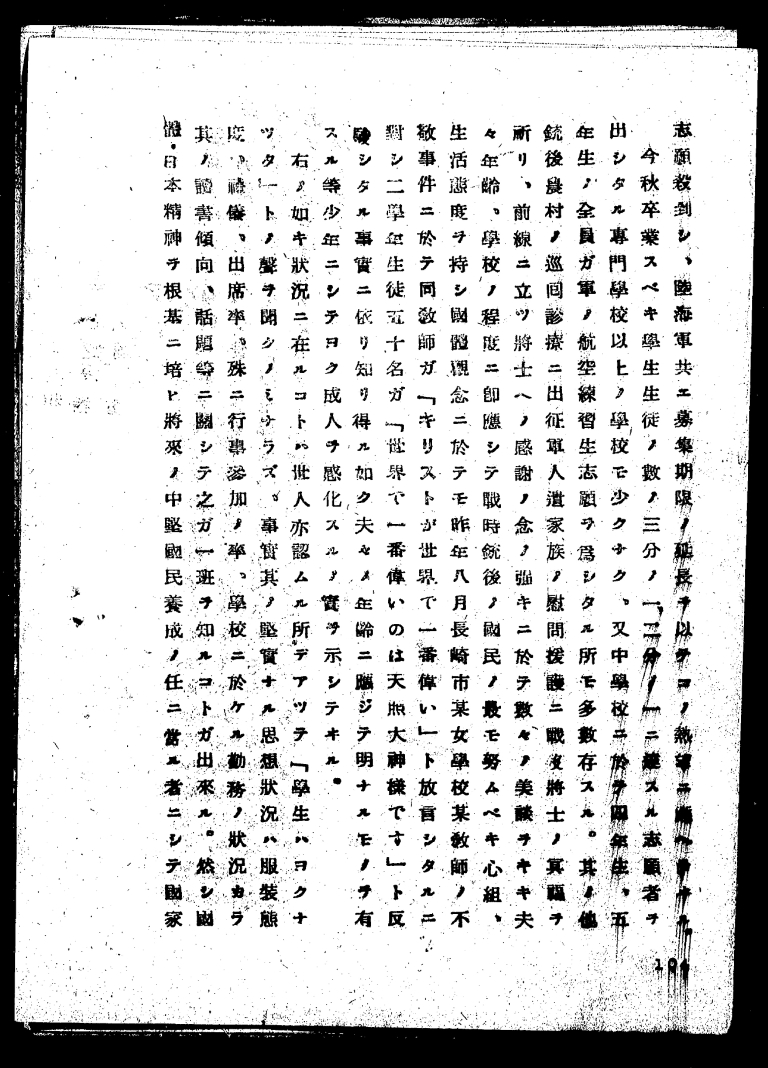 志願殺到シ、陸海軍共ニ募集期限ノ延長ヲ以テコノ熱望ニ應ヘテキル。
今秋卒業スベキ學生生徒ノ數ノ三分ノ一二分ノ一ニ達スル志願者ヲ
出シタル專門學校以上ノ學校モ少クナク、又中學校ニ於テ四年生、五
年生ノ全員ガ軍ノ航空練習生志願ヲ爲シタル所モ多數存スル。其ノ他
銃後農村ノ巡回診療ニ出征軍人遺家族ノ慰問援護ニ戰歿將士ノ冥福ヲ
所リ、前線ニ立ツ將士ヘノ感謝ノ念ノ强キニ於テ數々ノ美談ヲキキ夫
々年齡、學校ノ程度ニ卽應シテ戰時銃後ノ國民ノ最モ努ムベキ心組、
生活態度ヲ持シ國體觀念ニ於テモ昨年八月長崎市某女學校某敎師ノ不
敬事件ニ於テ同敎師ガ「キリストが世界で一番偉い」ト放言シタルニ
對シ二學年生徒五十名ガ「世界で一番偉いのは天照大神樣です」ト反
駁シタル事實ニ依リ知リ得ル如ク夫々ノ年齡ニ應ジテ明ナルモノヲ有
スル等少年ニシテヨク成人ヲ感化スルノ實ヲ示シテキル。
右ノ如キ狀況ニ在ルコトハ世人亦認ムル所デアツテ「學生ハヨクナ
ツタ」トノ聲ヲ聞クノミナラズ、事實其ノ堅實ナル思想狀況ハ服裝態
度、禮儀、出席率、殊ニ行事參加ノ率、學校ニ於ケル勤務ノ狀況カラ
其ノ讀書傾向、話題等ニ關シテ之ガ一班ヲ知ルコトガ出來ル。然シ國
體・日本精神ヲ根基ニ培ヒ將來ノ中堅國民養成ノ任ニ當ル者ニシテ國家
104